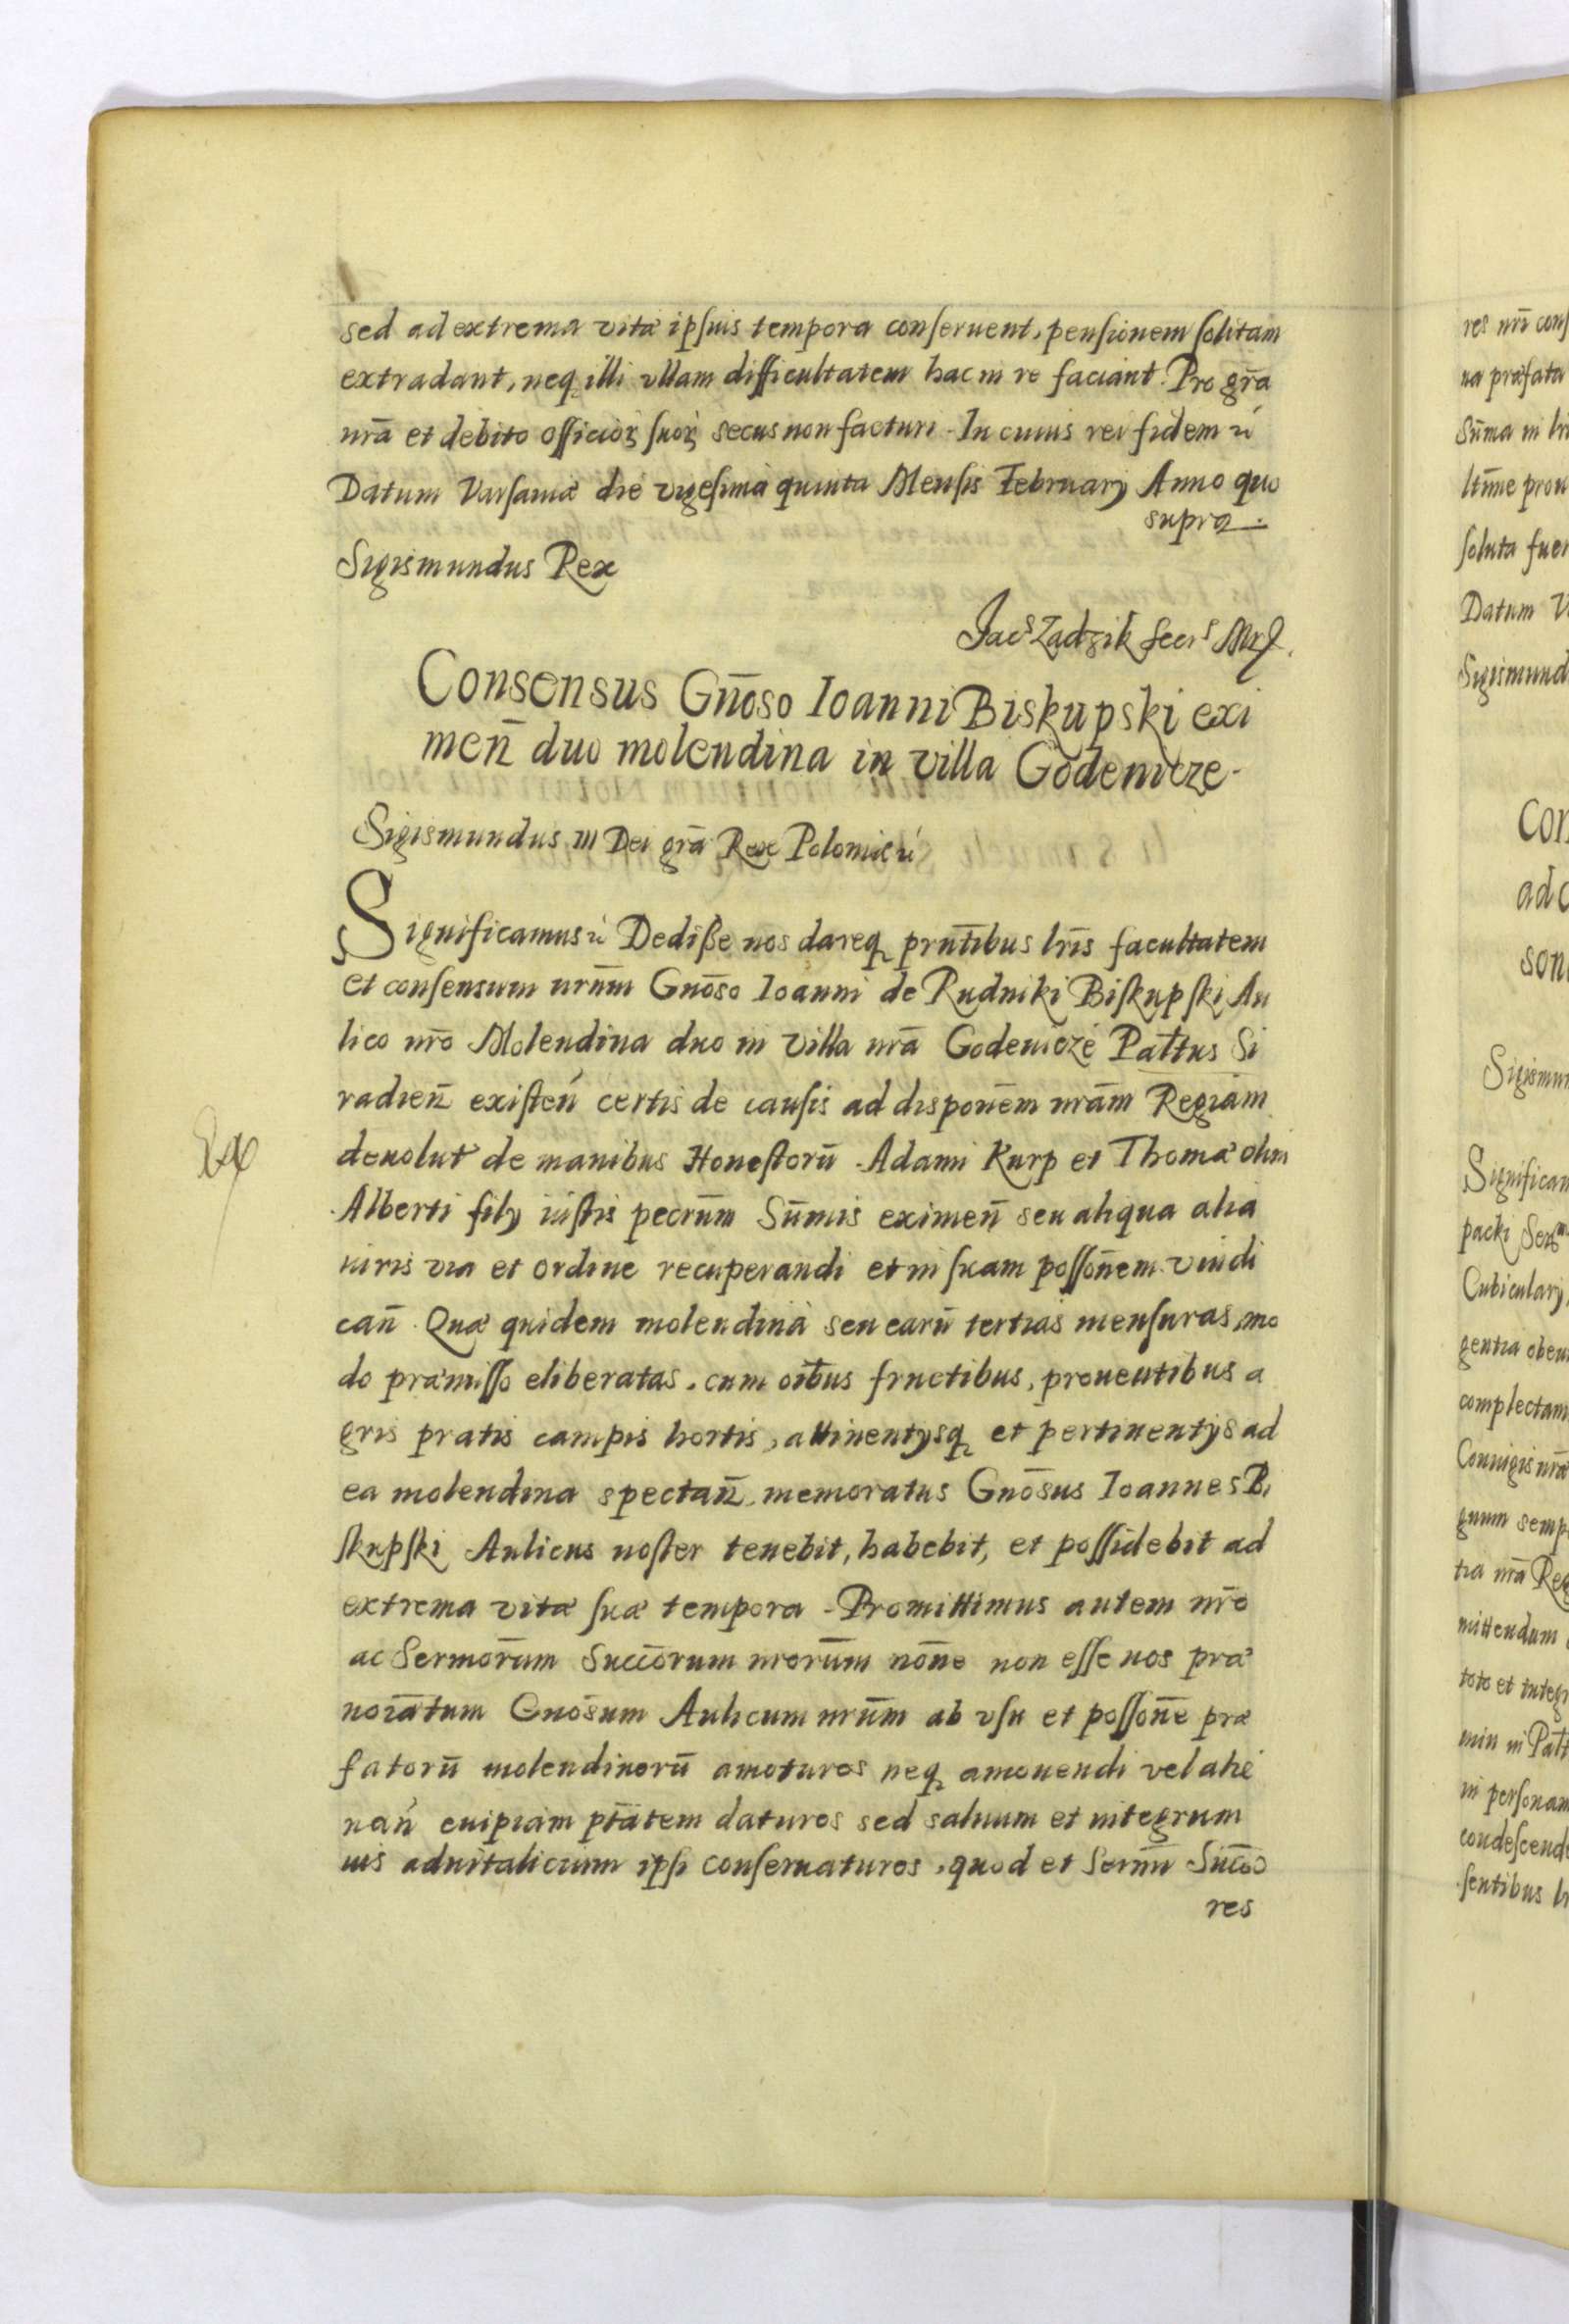 sed ad extrema vitæ ipsuis tempora conseruent, pensionem solitam
extradant, neq illi vllam difficultatem hac in re faciant. Pro gr̃a
nr̃a et debito officioꝝ suoꝝ secus non facturi. In cuius rei fidem ĕ
Datum Varsaniæ die vigesima quinta Mensis February Anno quo
supra.
Sigismundus Rex
Jacs Zadzik Secrs Mrſ.
Consensus Gño̅so Ioanni Biskupski exi
meñ duo molendina in villa Godenicze.
Sigismundus III Dei gr̃a Rex Poloniæ ĕ
Significamus ĕ Dediße nos dareq prñtibus lr̃is facultatem
et consensum nrũm Gnõso Ioanni de Rudniki Biskupski Au
lico nrõ Molendina duo in villa nr̃a Godenicze Paltt̃us Si
radieñ existeñ certis de causis ad disponẽm nrãm Regiam
deuolut̃ de manibus Honestorũ Adami Kurp et Thomæ olim
Alberti fily iustis pecrũm Sũmis eximeñ seu aliqua alia
iuris via et ordine recuperandi et in suam possoñem vindi
cañ. Quæ quidem molendina seu earũ tertias mensuras, mo
do præmisso eliberatas, cum oĩbus fructibus, prouentibus a
gris pratis campis hortis, attinentysq et pertinentys ad
ea molendina spectañ memoratus Gnõsus Ioannes Bi
skupski Aulicus noster tenebit, habebit, et possidebit ad
extrema vitæ suæ tempora. Promittimus autem nrõ
ac Sermorũm Succorum nrorũm nõne non esse nos præ
noĩatum Gnõsum Aulicum nrũm ab vsu et possoñe præ
fatorũ molendinorũ amoturos neq amouendi vel alie
nañ cuipiam ptãtem daturos sed saluum et integrum
ius aduitalicium ipsi conseruaturos, quod et Sermi Succo
res
res nrĩ cons
na præfata
Sũma in lr
ltĩme prou
soluta fuer
Datum V
Sigismund
Con
ad c
son
Sigismun
Significam
packi
Cubiculary
gentia obeu
complectam
Coniugis nræ
guum semp
tia nr̃a Reg
mittendum
toto et integr
min in Palt
in personam
condescend
sentibus lr